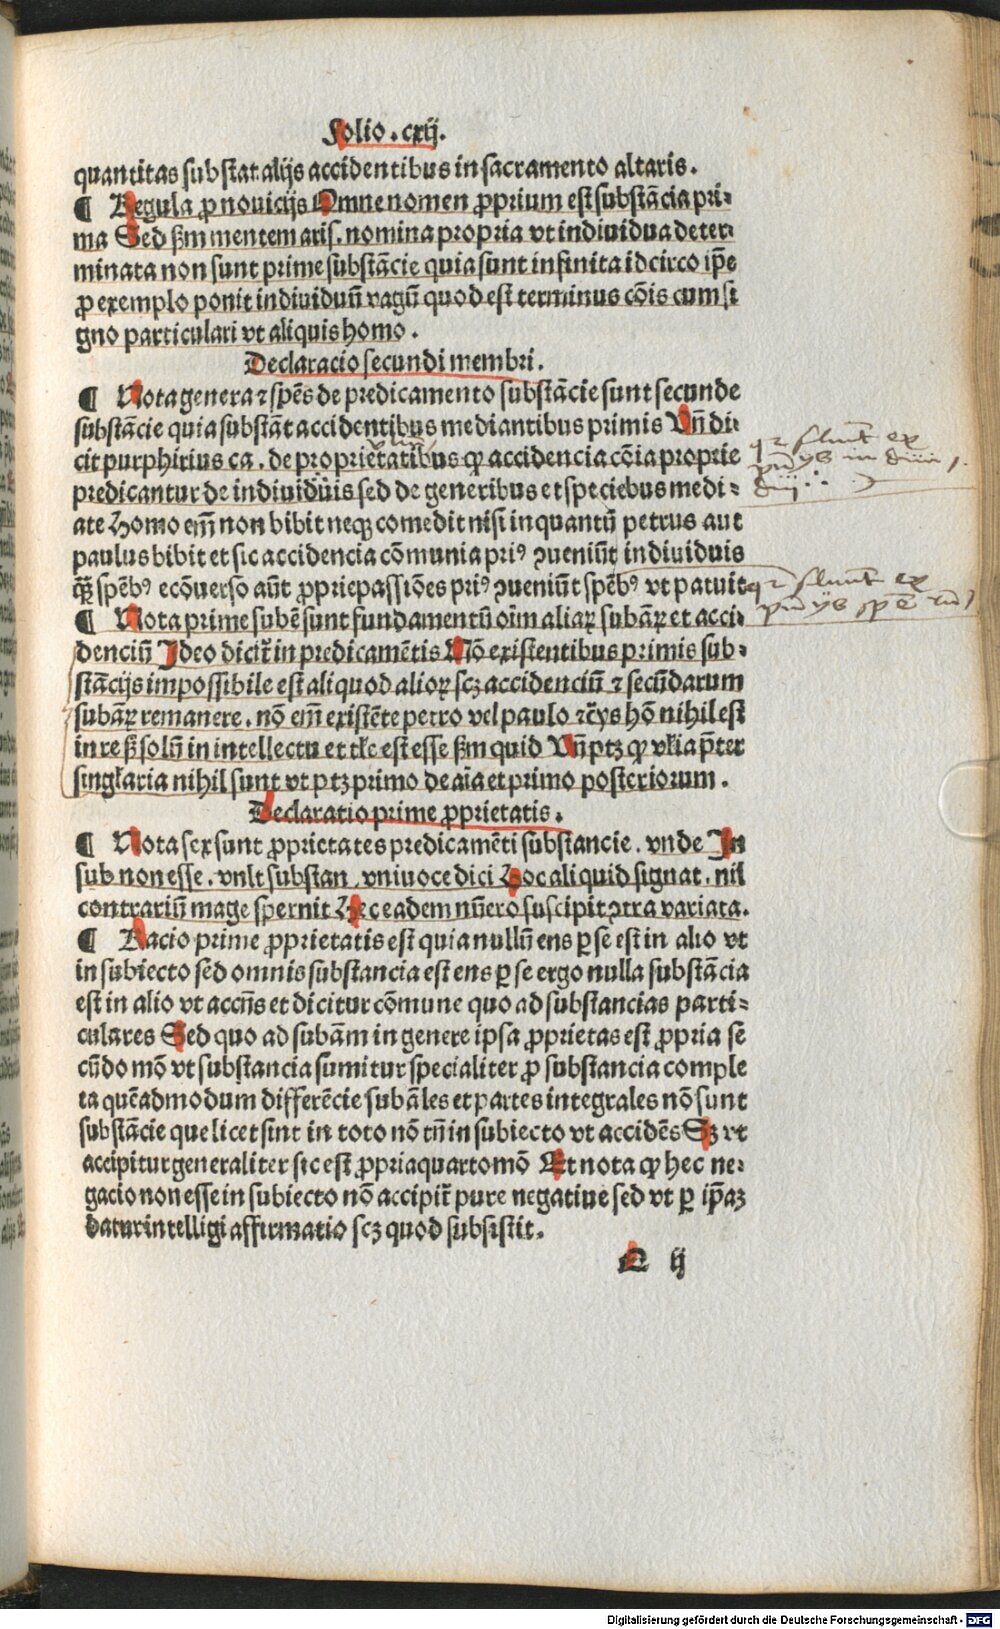 Folio . cxij.
quantitas substat alijs accidentibus in sacramento altaris.
¶ Regula ꝓ nouicijs Omne nomen ꝓprium est substãcia pri⸗
ma Sed ẜm mentem aris. nomina propria vt indiuidua deter⸗
minata non sunt prime substãcie quia sunt infinita idcirco ip̃e
ꝓ exemplo ponit indiuiduũ vagũ quod est terminus cõis cum si
gno particulari vt aliquis homo .
Declaracio secundi membri.
¶ Nota genera ⁊ spẽs de predicamento substãcie sunt secunde
substãcie quia substãt accidentibus mediantibus primis Vñ di⸗
cit purphirius ca. de proprietatibus ꝙ accidencia cõia proprie
predicantur de indiuiduis sed de generibus et speciebus medi⸗
ate Homo em̃ non bibit neqꝫ comedit nisi in quantũ petrus aut
paulus bibit et sic accidencia cõmunia priꝰ ꝯueniũt indiuiduis
qꝫ̃ spẽbꝰ ecõuerso aũt ꝓprie passiões priꝰ ꝯueniũt spẽbꝰ vt patuit
¶ Nota prime subẽ sunt fundamentũ oĩm aliaꝝ subãꝝ et acci⸗
denciũ Ideo dicit̃ in predicamẽtis Nõ existentibus primis sub⸗
stãcijs impossibile est aliquod alioꝝ scꝫ accidenciũ ⁊ secũdarum
subãꝝ remanere. nõ em̃ existẽte petro vel paulo ⁊c̃ys hõ nihil est
in re ß solũ in intellectu et tłe est esse ẜm quid Vñ ptꝫ ꝙ vl̃ia p̃ter
singłaria nihil sunt vt ptꝫ primo de aĩa et primo posteriorum .
Declaratio prime ꝓprietatis.
¶ Nota sex sunt ꝓprietates predicamẽti substancie . vnde In
sub non esse . vnlt substan . vniuoce dici Hoc aliquid signat. nil
contrariũ mage spernit Hec eadem nũero suscipit ꝯtra variata.
¶ Racio prime ꝓprietatis est quia nullũ ens ꝑ se est in alio vt
in subiecto sed omnis substancia est ens ꝑ se ergo nulla substãcia
est in alio vt accñs et dicitur cõmune quo ad substancias parti⸗
culares Sed quo ad subãm in genere ipsa ꝓprietas est ꝓpria se
cũdo mõ vt substancia sumitur specialiter ꝓ substancia comple
ta quẽadmodum differẽcie subãles et partes integrales nõ sunt
substãcie que licet sint in toto nõ tñ in subiecto vt accidẽs Sꝫ vt
accipitur generaliter sic est ꝓpria quarto mõ Et nota ꝙ hec ne⸗
gacio non esse in subiecto nõ accipit̃ pure negatiue sed vt ꝑ ip̃aꝫ
datur intelligi affirmatio scꝫ quod subsistit.
ij
Digitalisierung gefördert durch die Deutsche Forschungsgemeinschaft - DFG